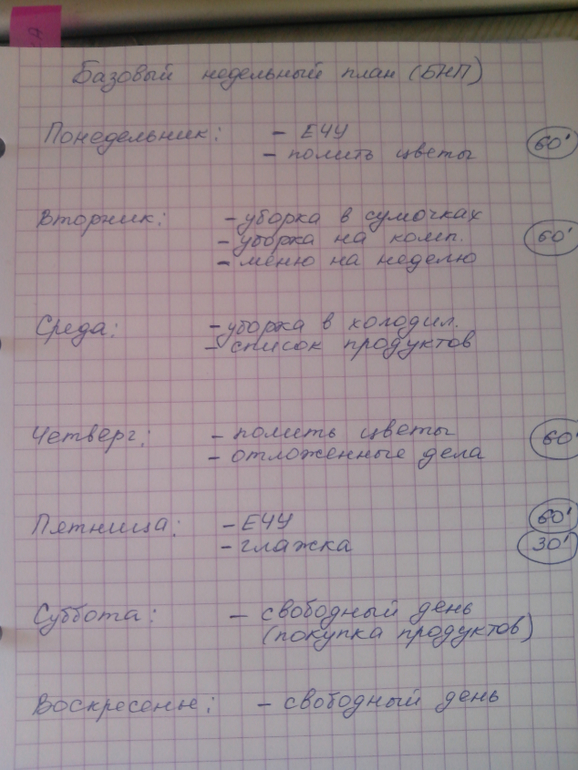 Базовый недельный план (БНП)
Понедельник: - ЕЧУ
- полить цветы 60'
Вторник: - уборка в сумочках
- уборка на комп. 60'
- меню на неделю
Среда: - уборка в холодил.
- список продуктов
Четверг: - полить цветы 60'
- отложенные дела
Пятница: - ЕЧУ 60'
- глажка 30'
Суббота: - свободный день
(покупка продуктов)
Воскресенье: - свободный день